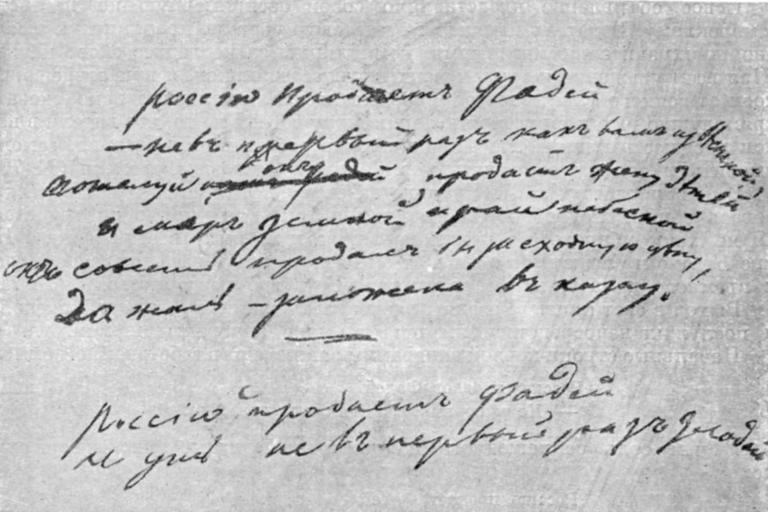 Россiю продаетъ Фадей
— не въ первый разъ какъ вамъ извѣстной
пожалуй онъ продастъ жену дѣтей
и миръ земной и рай небесной
совесть продалъ за сходную цѣну,
Да жаль – заложена въ казну.
Россiю продаетъ Фадей
не въ первый разъ злодей